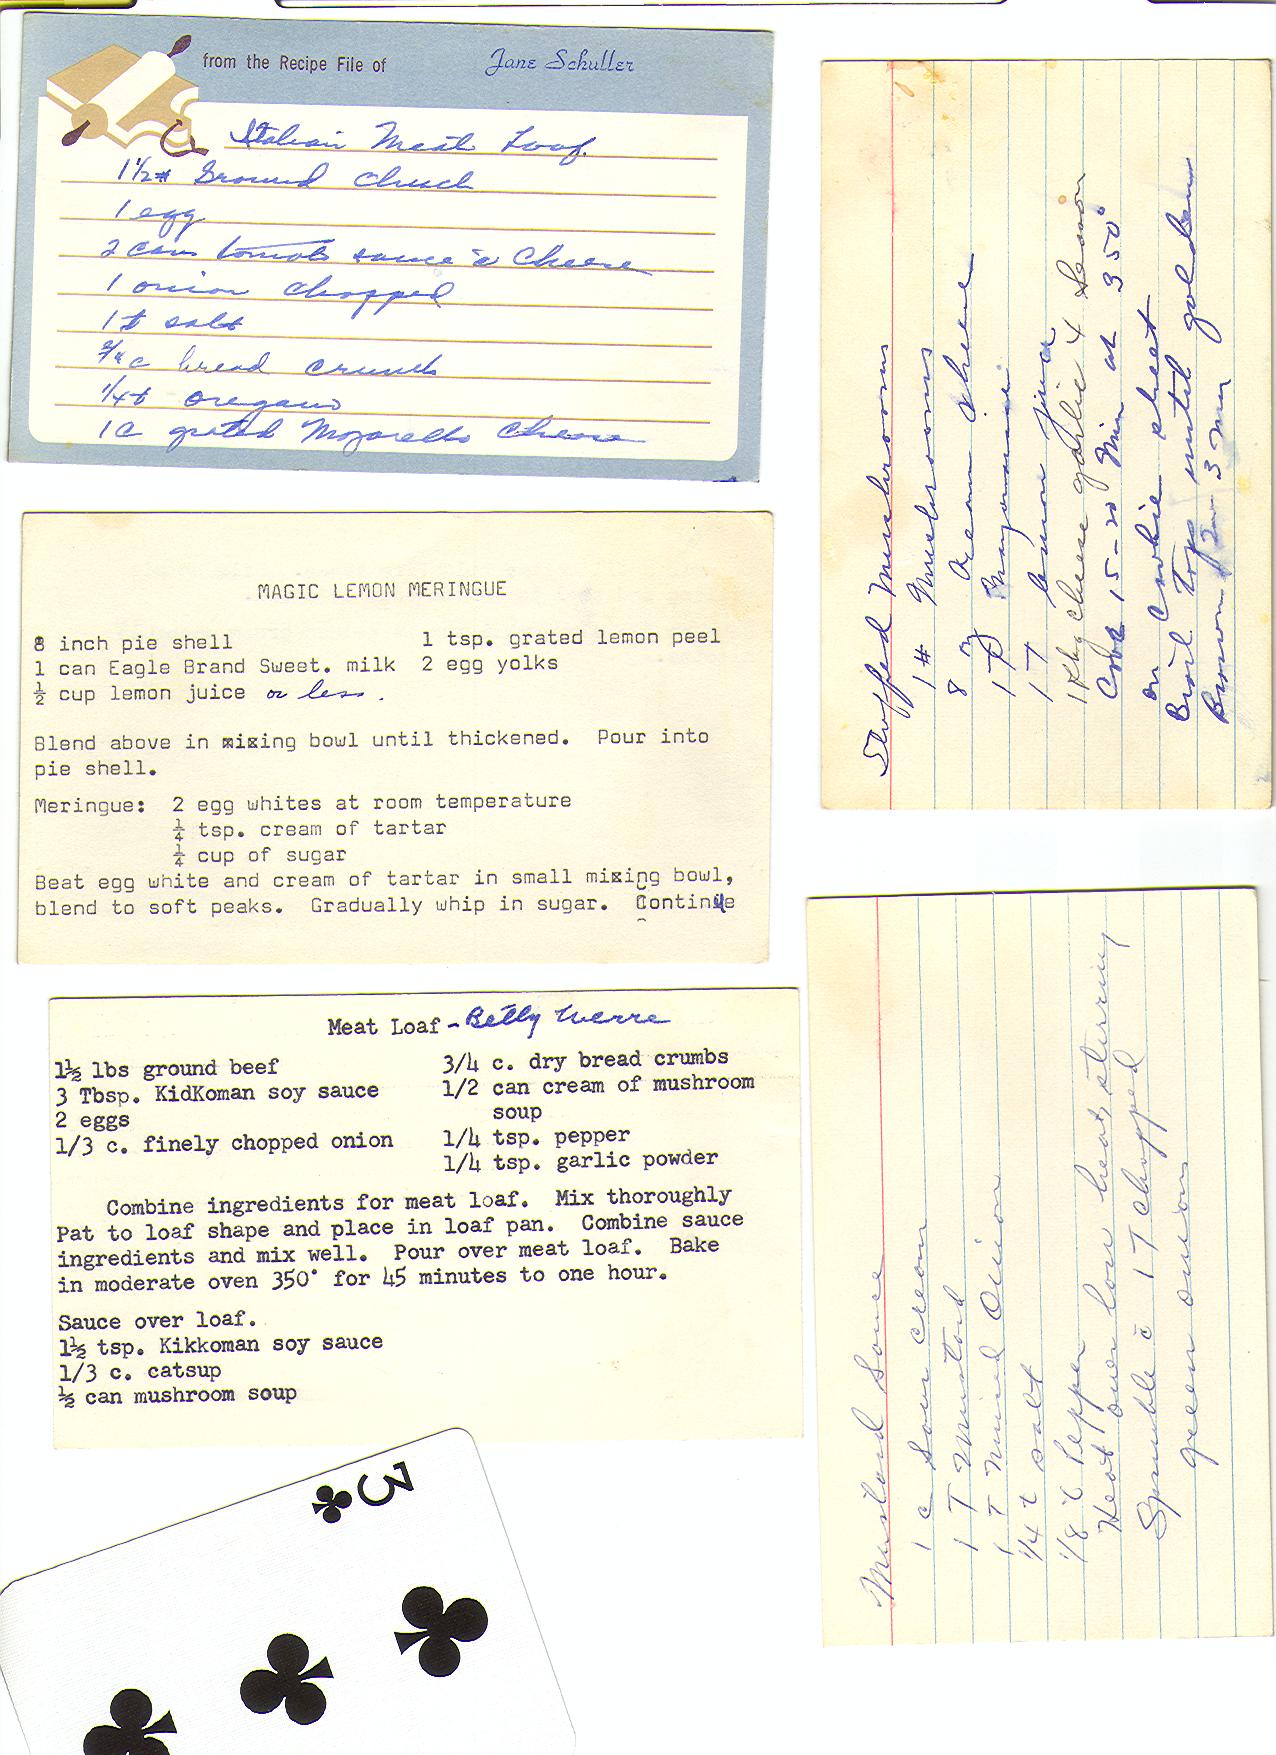 from the Recipe File of Jane Schuller
Italian Meat Loaf
1 1/2# Ground Chuck
1 egg
2 cans tomato sauce c̄ Cheese
1 onion chopped
1 t salt
3/4 c bread crumbs
1/4 t oregano
1 C grated Mozarella Cheese
MAGIC LEMON MERINGUE
8 inch pie shell 1 tsp. grated lemon peel
1 can Eagle Brand Sweet. milk 2 egg yolks
½ cup lemon juice or less.
Blend above in mixing bowl until thickened. Pour into
pie shell.
Meringue: 2 egg whites at room temperature
¼ tsp. cream of tartar
¼ cup of sugar
Beat egg white and cream of tartar in small mixing bowl,
blend to soft peaks. Gradually whip in sugar. Continue
Meat Loaf - Betty
1½ lbs ground beef 3/4 c. dry bread crumbs
3 Tbsp. KidKoman soy sauce 1/2 can cream of mushroom
2 eggs soup
1/3 c. finely chopped onion 1/4 tsp. pepper
1/4 tsp. garlic powder
Combine ingredients for meat loaf. Mix thoroughly
Pat to loaf shape and place in loaf pan. Combine sauce
ingredients and mix well. Pour over meat loaf. Bake
in moderate oven 350° for 45 minutes to one hour.
Sauce over loaf.
1½ tsp. Kikkoman soy sauce
1/3 c. catsup
½ can mushroom soup
3
Stuffed Mushrooms
1# Mushrooms
8 oz cream cheese
1 T Mayonnaise
1 T lemon juice
1 Pkg cheese garlic
Cook 15-20 Min at 350°
on Cookie sheet
Broil tops until golden
Brown 2 3 min
Mustard Sauce
1 c Sour Cream
1 T Mustard
1 T Minced Onion
1/4 t salt
1/8 t Pepper
Heat over low heat, stirring
Sprinkle c̄ 1 T chopped
green onions